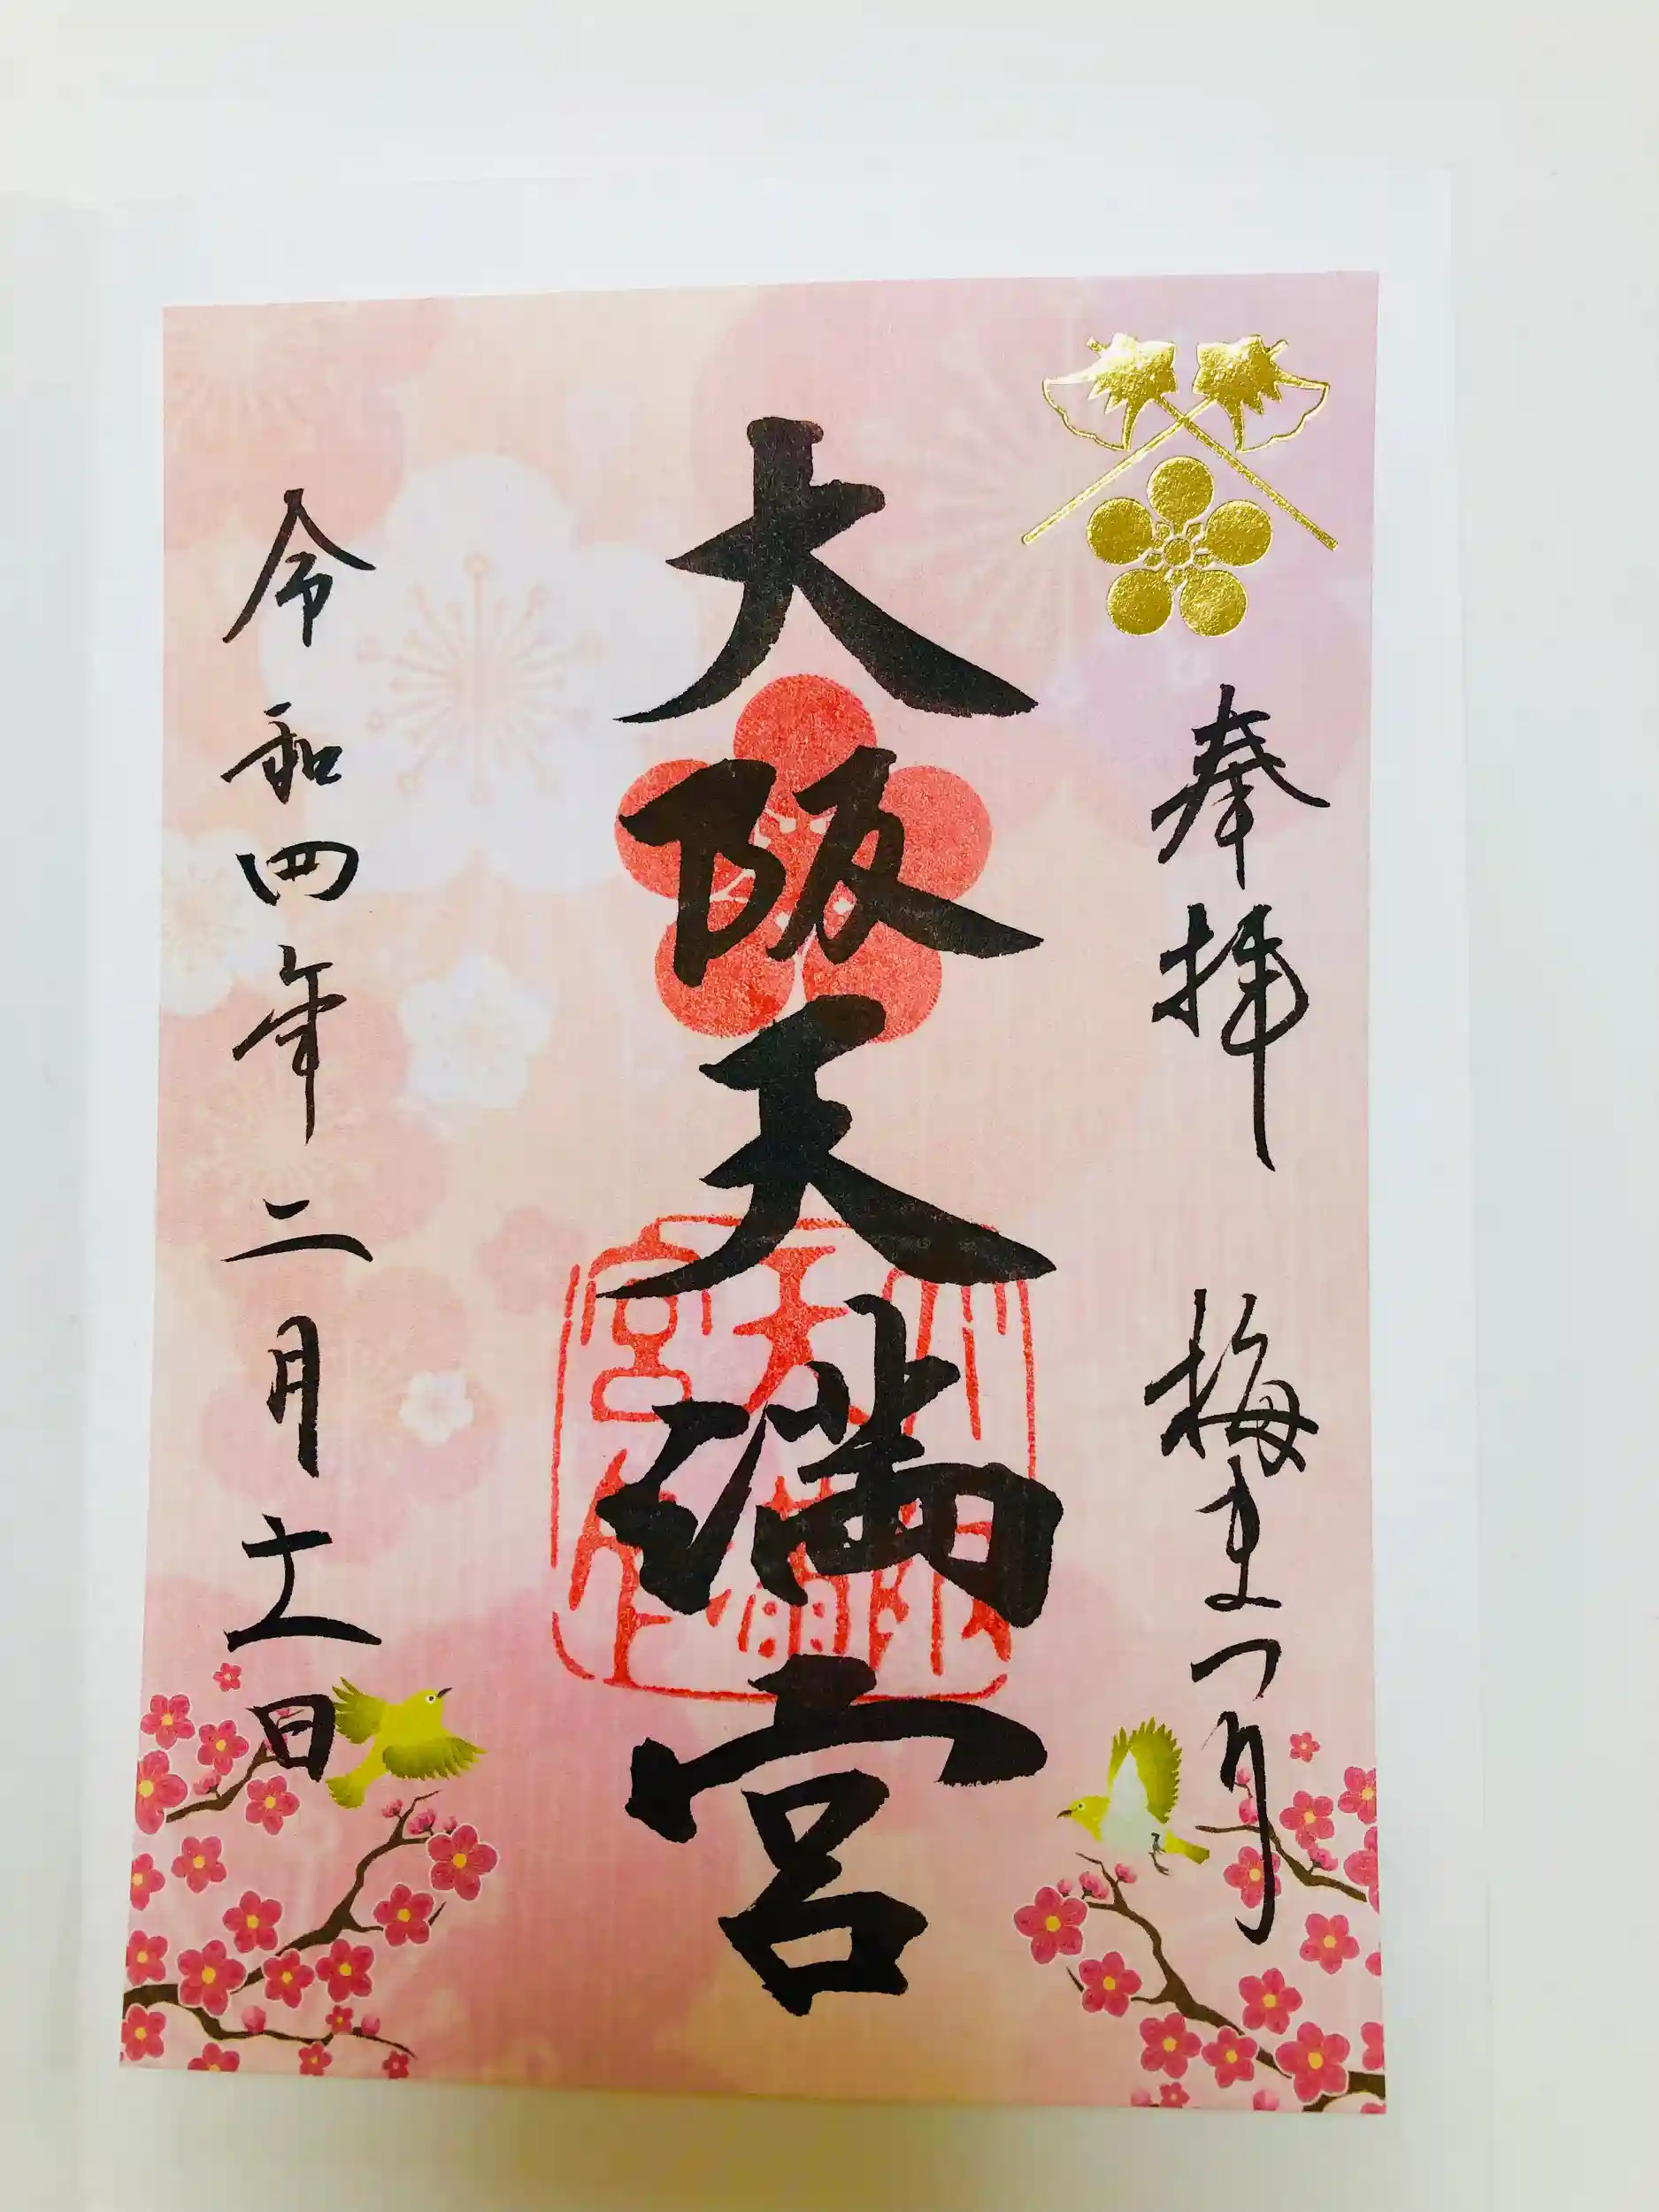 奉拝 梅まつり
大阪天満宮
令和四年二月十二日